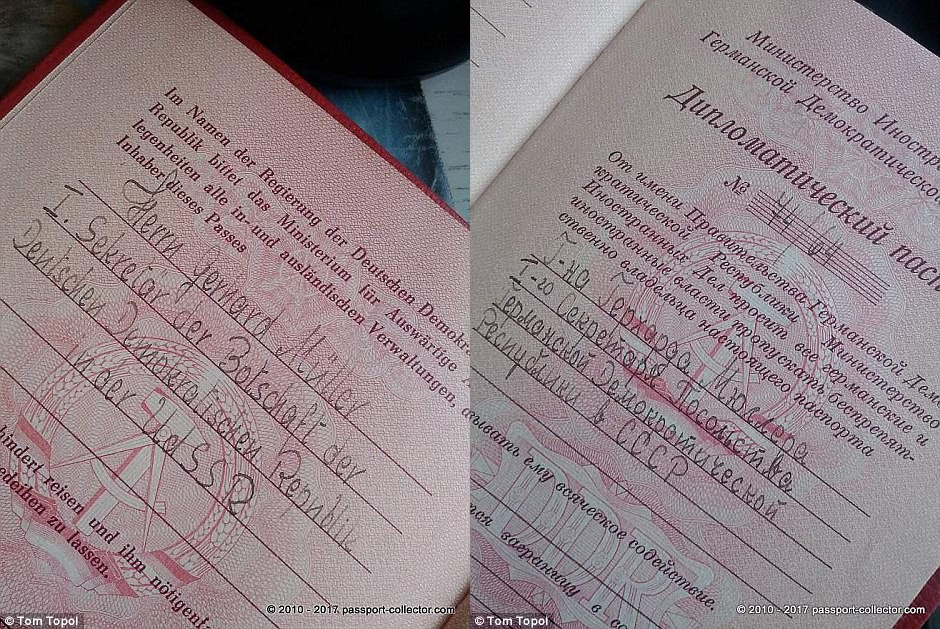 Im Namen der Regierung der Deutschen Demokra
Republik bittet das Ministerium für Auswärtige
legenheiten alle in- und ausländischen Verwaltungen,
Inhaber dieses Passes
Herrn Gerhard Müller
I. Sekretär der Botschaft der
Deutschen Demokratischen Republik
in der UdSSR
hindert reisen und ihm nötigen
edeihen zu lassen.
© Tom Topol
© 2010 - 2017 passport-collector.com
Министерство Иностр
Германской Демократической
Дипломатический пасп
№ 44/64
От имени Правительства Германской Дем
кратической Республики Министерство
Иностранных Дел просит все германские и
иностранные власти пропускать беспрепят-
ственно владельца настоящего паспорта
Г-на Герхарда Мюллера
I-го Секретаря Посольства
Германской Демократической
Республики в СССР
зывать ему всяческое содействие.
тся заграницу в
© Tom Topol
© 2010 - 2017 passport-collector.com